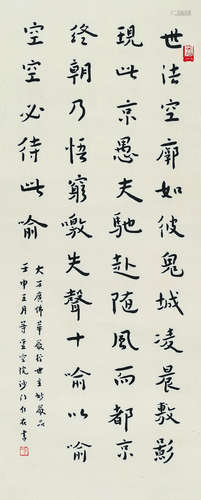 世法空廓如彼鬼城凌晨敷影
現此京愚夫馳赴随風而都京
終朝乃悟窮噭失聲十喻以喻
空空必待此喻
大方廣佛華嚴經世主妙嚴品
壬申五月